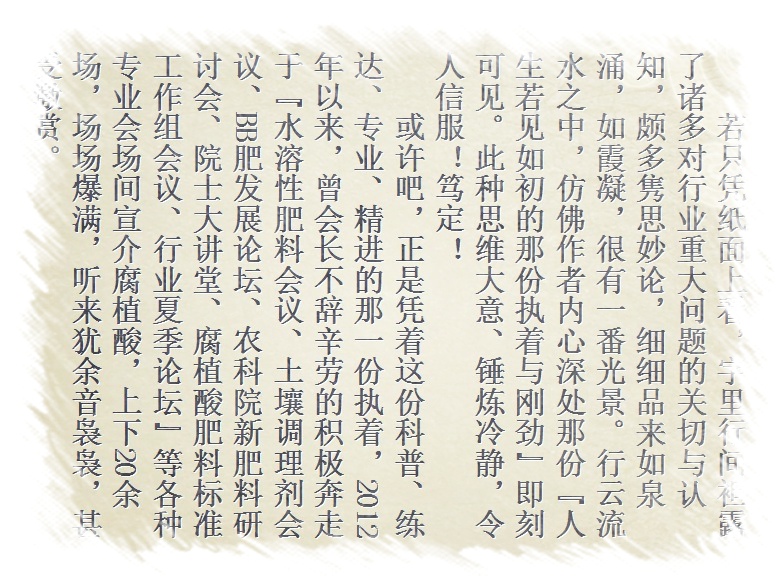 若只凭纸面上看，字里行间袒露
了诸多对行业重大问题的关切与认
知，颇多隽思妙论，细细品来如泉
涌，如霞凝，很有一番光景。行云流
水之中，仿佛作者内心深处那份『人
生若见如初的那份执着与刚劲』即刻
可见。此种思维大意、锤炼冷静，令
人信服！笃定！
或许吧，正是凭着这份科普、练
达、专业、精进的那一份执着，2012
年以来，曾会长不辞辛劳的积极奔走
于『水溶性肥料会议、土壤调理剂会
议、BB肥发展论坛、农科院新肥料研
讨会、院士大讲堂、腐植酸肥料标准
工作组会议、行业夏季论坛』等各种
专业会场间宣介腐植酸，上下20余
场，场场爆满，听来犹余音袅袅，甚
受激赏。